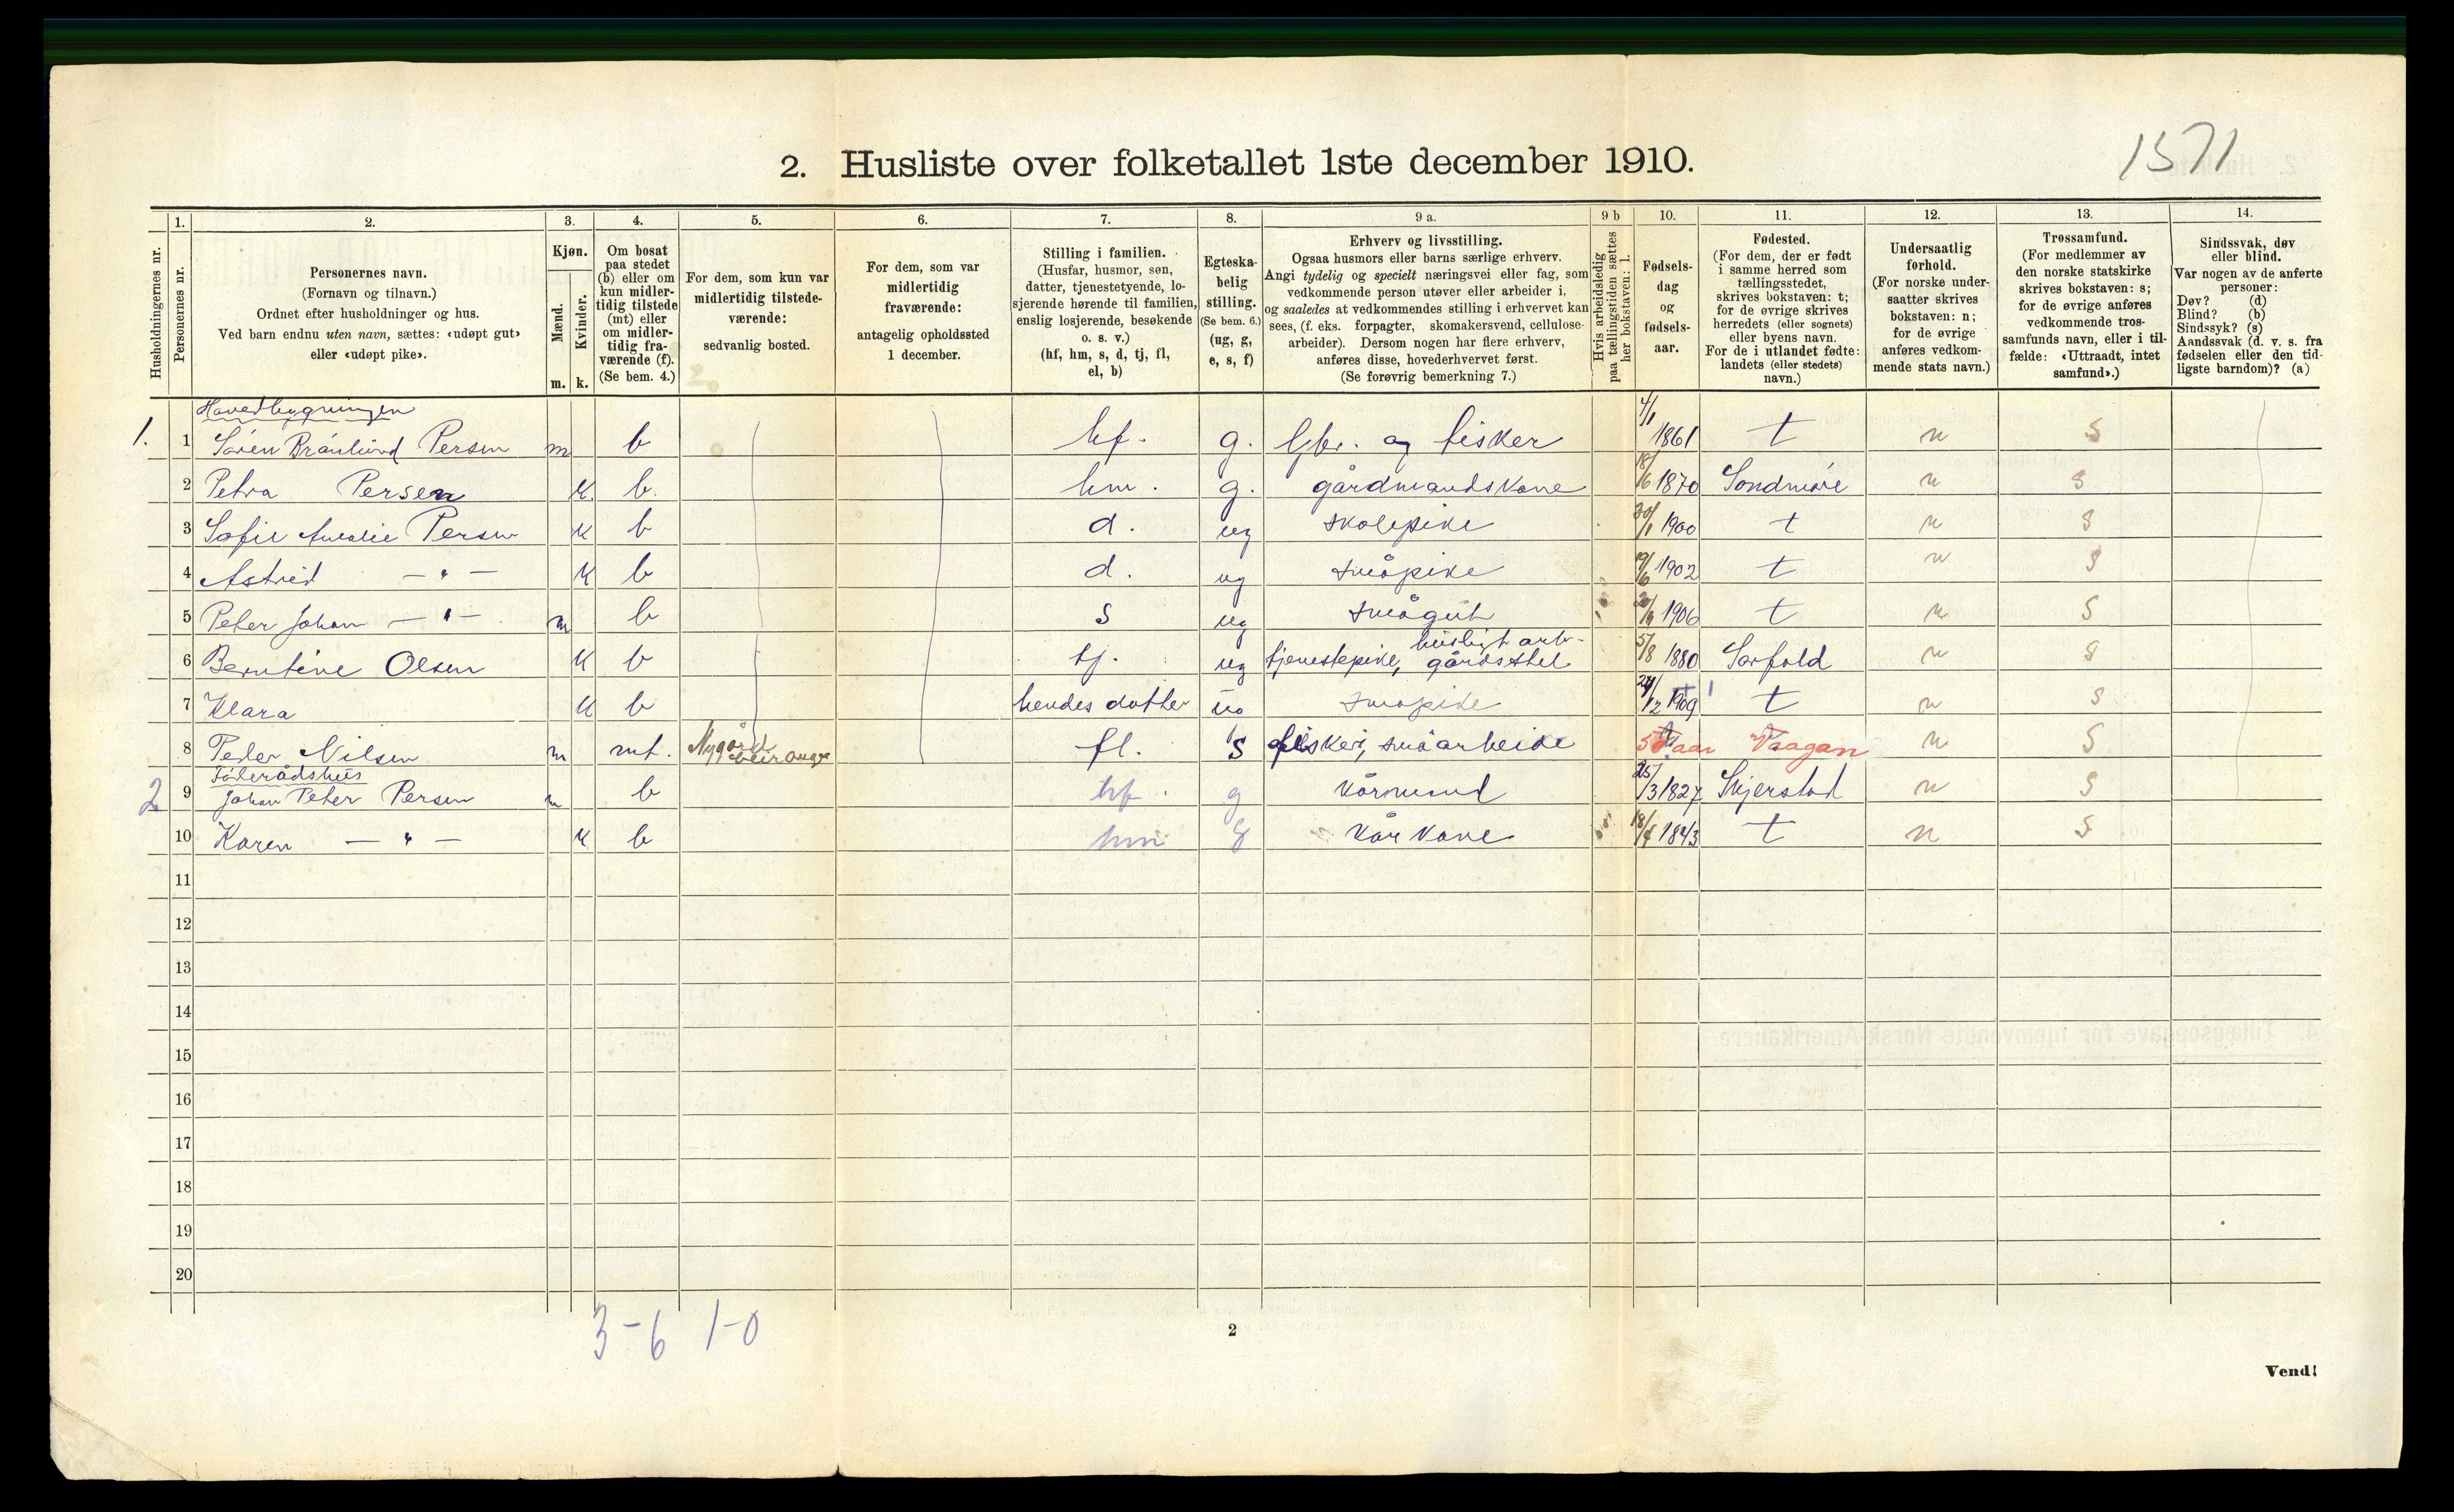 1571
2. Husliste over folketallet 1ste december 1910.
Husholdningernes nr.
1.
Personernes nr.
2.
Personernes navn.
(Fornavn og tilnavn.)
Ordnet efter husholdninger og hus.
Ved barn endnu uten navn, sættes: «udøpt gut»
eller «udøpt pike».
3.
Kjøn.
Mænd.
Kvinder.
m. k.
4.
Om bosat
paa stedet
(b) eller om
kun midler-
tidig tilstede
(mt) eller
om midler-
tidig fra-
værende (f).
(Se bem. 4.)
5.
For dem, som kun var
midlertidig tilstede-
værende:
sedvanlig bosted.
6.
For dem, som var
midlertidig
fraværende:
antagelig opholdssted
1 december.
7.
Stilling i familien.
(Husfar, husmor, søn,
datter, tjenestetyende, lo-
sjerende hørende til familien,
enslig losjerende, besøkende
o. s. v.)
(hf, hm, s, d, tj, fl,
el, b)
8.
Egteska-
belig
stilling.
(Se bem. 6.)
(ug, g,
e, s, f)
9 a.
Erhverv og livsstilling.
Ogsaa husmors eller barns særlige erhverv.
Angi tydelig og specielt næringsvei eller fag, som
vedkommende person utøver eller arbeider i,
og saaledes at vedkommendes stilling i erhvervet kan
sees, (f. eks. forpagter, skomakersvend, cellulose-
arbeider). Dersom nogen har flere erhverv,
anføres disse, hovederhvervet først.
(Se forøvrig bemerkning 7.)
9 b
Hvis arbeidsledig
paa tællingstiden sættes
her bokstaven: l.
10.
Fødsels-
dag
og
fødsels-
aar.
11.
Fødested.
(For dem, der er født
i samme herred som
tællingsstedet,
skrives bokstaven: t;
for de øvrige skrives
herredets (eller sognets)
eller byens navn.
For de i utlandet fødte:
landets (eller stedets)
navn.)
12.
Undersaatlig
forhold.
(For norske under-
saatter skrives
bokstaven: n;
for de øvrige
anføres vedkom-
mende stats navn.)
13.
Trossamfund.
(For medlemmer av
den norske statskirke
skrives bokstaven: s;
for de øvrige anføres
vedkommende tros-
samfunds navn, eller i til-
fælde: «Uttraadt, intet
samfund».)
14.
Sindssvak, døv
eller blind.
Var nogen av de anførte
personer:
Døv? (d)
Blind? (b)
Sindssyk? (s)
Aandssvak (d. v. s. fra
fødselen eller den tid-
ligste barndom)? (a)
Hovedbygningen
1. 1 Sören Brönlund Persen m b hf. g. Gbr. og fisker 4/1 1861 t n s
2 Petra Persen k b. hm. g. gårdmandskone 18/6 1870 Sondmöre n s
3 Sofie Amalie Persen k b d. ug skolepike 30/1 1900 t n s
4 Astrid — " — k b d. ug småpike 19/6 1902 t n s
5 Peter Johan — " — m b s ug smågut 20/9 1906 t n s
6 Berntine Olsen k b tj. ug tjenestepike, husligt arb- gårdsstel 5/8 1880 Sørfold n s
7 Klara k b hendes datter ug småpike 24/12 1909 t n s
8 Peder Nilsen m mt. Nygård fl. s fisker, småarbeide aar Vaagan n s
Föderådshus
2 9 Johan Peter Persen m b hf. g kårmand 25/3 1827 Skjerstad n s
10 Karen — " — k b hm g kårkone 1843 t n s
11
12
13
14
15
16
17
18
19
20
3-6 1-0
2
Vend!